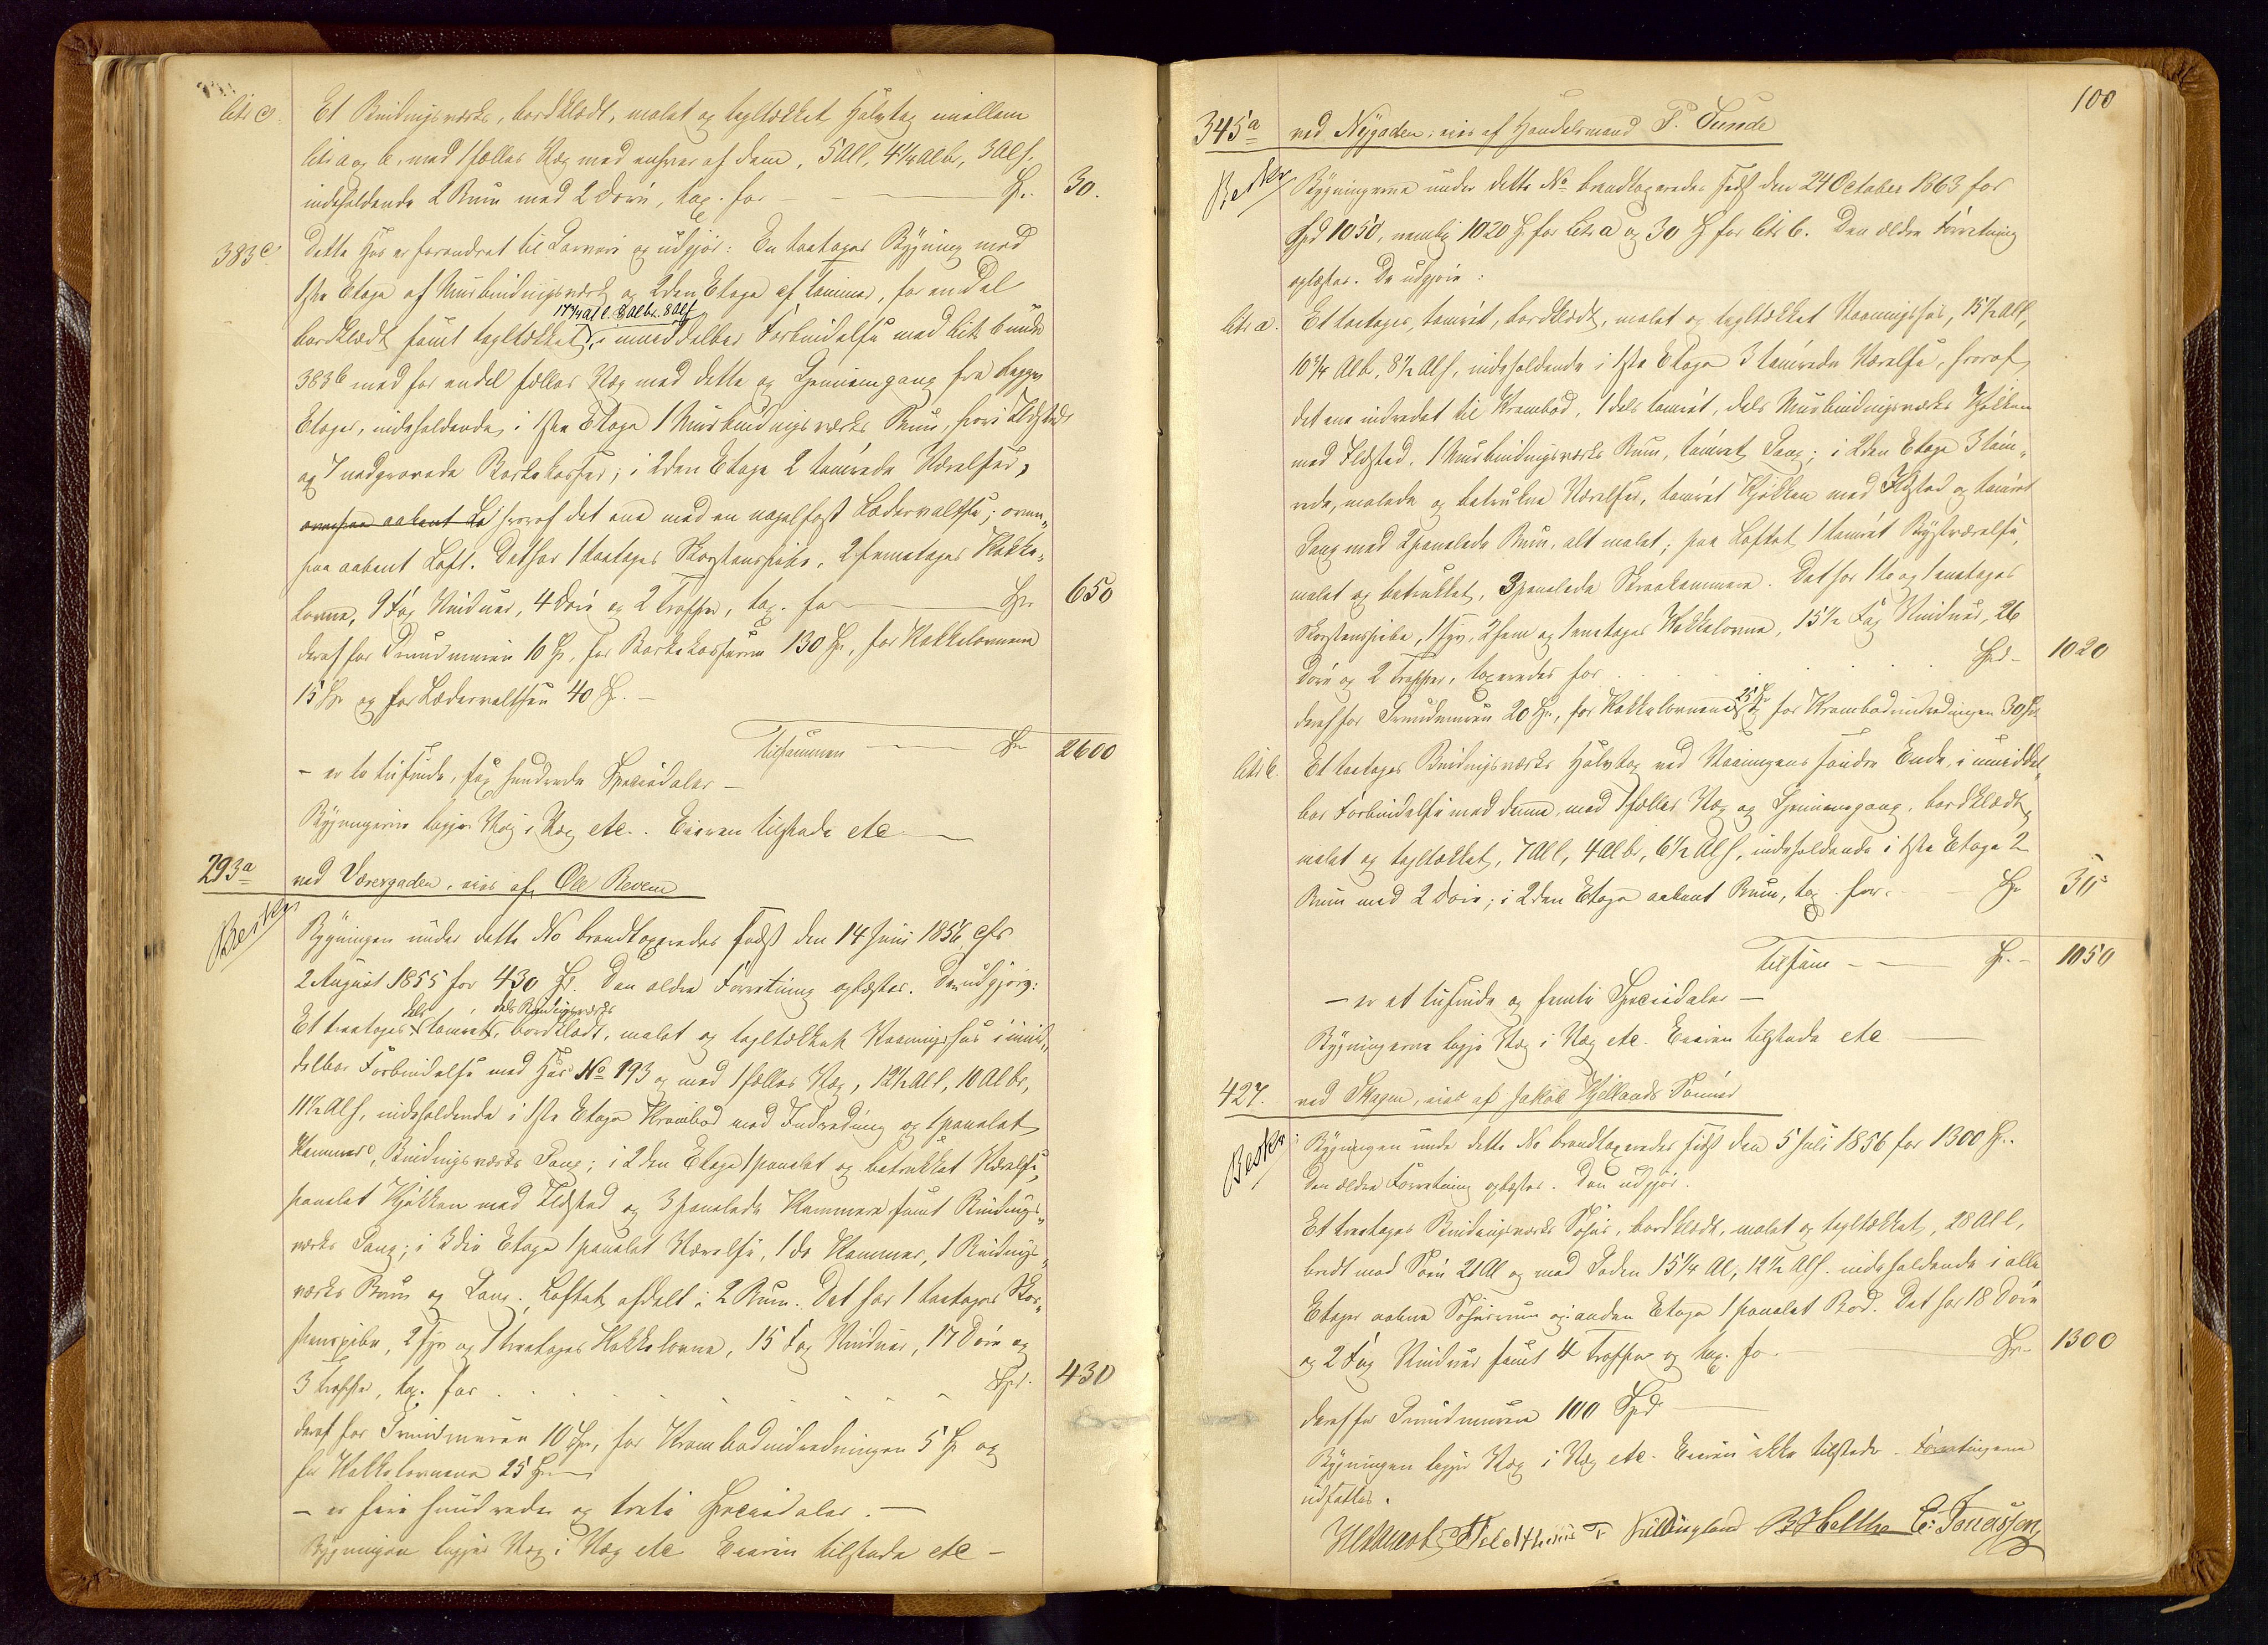 litr c. Et Bindingsværks, bordklædt, malet og tegltækket Halvtag mellem
litr a og b, med 1 fælles Væg med enhver af dem, 5 Al l, 4 1/4 Al br, 3 Al h.
indeholdende 2 Rum med 2 Döre, tax. for — Sp. 30.
383c Dette Hus er forandret til Garveri og udgjör: En toetages Bygning med
1ste Etage af Murbindingsværk og 2den Etage af Tömmer, for en Del
17 1/4 Al l. 8 Al br. 8 Al h
bordklædt samt tegltækket, i umiddelbar Forbindelse med litr b under
383b med for en del fælles Væg med dette og Gjennemgang fra begge
Etager, indeholdende i 1ste Etage 1 Murbindingsværks Rum, hvori Ildsted
og 7 nedgravede Barkekasser; i 2den Etage 2 tömrede Værelser,
ovenpaa aabent Lo hvoraf det ene med en nagelfast Lædervaltse; oven„
paa aabent Loft. Det har 1 toetages Skorstenspibe, 2 Kakke„
lovne, 9 Fag Vinduer, 4 Döre og 2 Trapper, tax. for — Sp. 650
deraf for Grundmuren 10 Sp, for Barkekasserne 130 Sp, for Kakkelovnene
15 Sp og for Lædervaltsen 40 Sp. —
Tilsammen — Sp 2600
– er to tusinde, sex hundrede Speciedaler –
Bygningerne ligger Væg i Væg etc. Eieren tilstede etc. —
293a ved , eies af Ole Revem
Beskr Bygningen under dette No brandtaxeredes sidst den 14 Juni 1856, cfr
2 August 1855 for 430 Sp. Den ældre Forretning oplæstes. Den udgjör:
dels dels Bindingsværks
Et treetages tömret, bordklædt, malet og tegltækket Vaaningshus i umid„
delbar Forbindelse med Hus No 193 og med 1 fælles Væg, 12 1/2 Al l, 10 Al br,
11 1/2 Al h, indeholdende i 1ste Etage Krambod med Indredning og 1 panelet
Kammer, Bindingsværks Gang; i 2den Etage 1 panelet og betrukket Værelse,
panelet Kjökken med Ildsted og 3 panelede Kammere samt Bindings„
værks Gang; i 3die Etage 1 panelet Værelse, 1 do Kammer, 1 Bindings„
værks Rum og Gang. Loftet afdelt i 2 Rum. Det har 1 toetages Skor„
stenspibe, 2 fyr og 1 treetages Kakkelovne, 15 Fag Vinduer, 17 Döre og
3 Trapper, tax. for . . . . . Spd. 430
deraf for Grundmuren 10 Sp, for Krambodindredningen 5 Sp og
for Kakkelovnene 25 Sp
– er fire hundrede og treti Speciedaler. —
Bygningen ligger Væg i Væg etc Eieren tilstede etc –
100
345a ved Nygaden, eies af Handelsmand P. Sunde
Beskr. Bygningerne under dette No brandtaxeredes sidst den 24 October 1863 for
Spd 1050, nemlig 1020 Sp for litr a og 30 Sp for litr b. Den ældre Forretning
oplæstes. De udgjöre:
litr a. Et toetages, tömret, bordklædt, malet og tegltækket Vaaningshus, 15 1/2 Al l,
10 3/4 Al b, 8 1/2 Al h, indeholdende i 1ste Etage 3 tömrede Værelser, hvoraf
det ene indredet til Krambod, 1 dels tömret, dels Murbindingsværks Kjökken
med Ildsted, 1 Murbindingsværks Rum, tömret Gang; i 2den Etage 3 töm„
rede, malede og betrukne Værelser, tömret Kjökken med Ildsted og tömret
Gang med 2 panelede Rum, alt malet; paa Loftet 1 tömret Qvistværelse,
malet og betrukket, 3 panelede Skraakammere. Det har 1 to og 1 enetages
Skorstenspibe, 1 fyr, 2 fem og 1 enetages Kakkelovne, 15 1/2 Fag Vinduer, 26
Döre og 2 Trapper, taxeredes for . . . . Spd. 1020
25 Sp
deraf for Grundmuren 20 Sp, for Kakkelovnene og for Krambodindredningen 30 Sp.
litr b. Et toetages Bindingsværks Halvtag ved Vaaningens söndre Ende, i umiddel„
bar Forbindelse med denne, med 1 fælles Væg og Gjennemgang, bordklædt,
malet og tegltækket, 7 Al l, 4 Al br, 6 1/2 Al h, indeholdende i 1ste Etage 2
Rum med 2 Döre; i 2den Etage aabent Rum, tax. for. — Sp 30
Tilsam — Sp. – 1050
– er et tusinde og femti Speciedaler –
Bygningerne ligge Væg i Væg etc. Eieren tilstede etc —
427. ved Skagen, eies af Jakob Kjellands Sönner
Beskr: Bygningen under dette No brandtaxeredes sidst den 5 Juli 1856 for 1300 Sp.
Den ældre Forretning oplæstes. Den udgjör.
Et treetages Bindingsværks Söhus, bordklædt, malet og tegltækket, 28 Al l,
bredt mod Söen 21 Al og mod Gaden 15 1/4 Al, 12 1/2 Al h. indeholdende i alle
Etager aabne Söhusrum og i anden Etage 1 panelet Bod. Det har 18 Döre
og 2 Fag Vinduer samt 4 Trapper og tax. for — Sp. 1300
deraf for Grundmuren 100 Spd —
Bygningen ligger Væg i Væg etc. Eieren ikke tilstede. Forretningerne
udsattes.
T Kieldingland B Helthe C. Jonassen